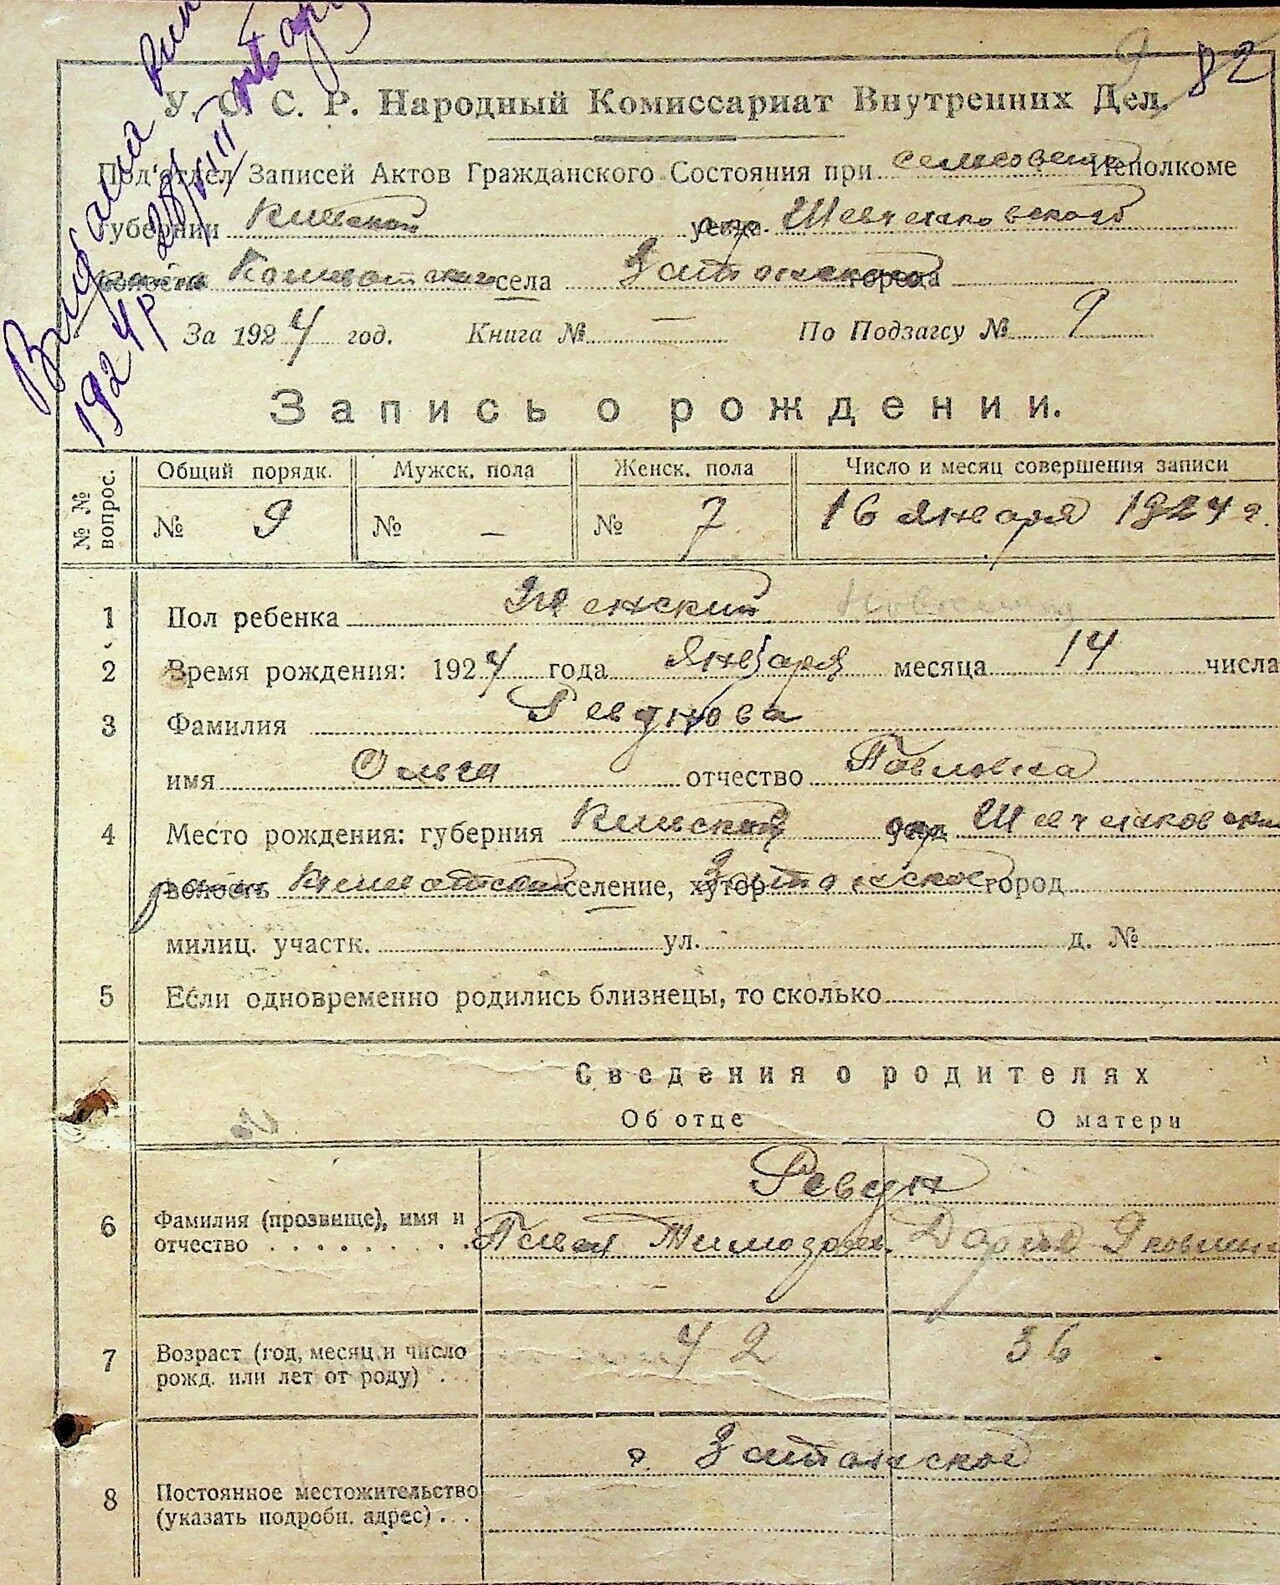 82
У. С. С. Р. Народный Комиссариат Внутренних Дел.
Под'отдел Записей Актов Гражданского Состояния при сельсовете Исполкоме
Губернии Киевской окр. Шевченковского
села Затонского города
За 1924 год. Книга № — По Подзагсу № 9
Запись о рождении.
№ № вопрос. Общий порядк. Мужск. пола Женск. пола Число и месяц совершения записи
№ 9 № — № 7 16 января 1924 г.
1 Пол ребенка Женский
2 Время рождения: 1924 года января месяца 14 числа
3 Фамилия Ревунова
имя Ольга отчество Павловна
4 Место рождения: губерния Киевской окр Шевченковский
волость селение, хутор Затонское город
милиц. участк. ул. д. №
5 Если одновременно родились близнецы, то сколько
Сведения о родителях
Об отце О матери
Ревун
6 Фамилия (прозвище), имя и
отчество . . . . . . . . . Павел Тимофеев. Дария Яковлевн
7 Возраст (год, месяц и число 42 36
рожд. или лет от роду) . . .
с. Затонское
8 Постоянное местожительство
(указать подробн. адрес) . . .